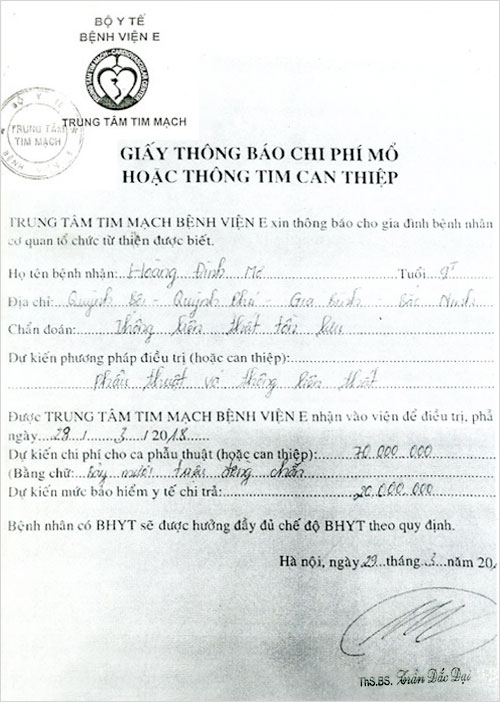 BỘ Y TẾ
BỆNH VIỆN E
TRUNG TÂM TIM MẠCH
TRUNG TÂM
TIM MẠCH
GIẤY THÔNG BÁO CHI PHÍ MỔ
HOẶC THÔNG TIM CAN THIỆP
TRUNG TÂM TIM MẠCH BỆNH VIỆN E xin thông báo cho gia đình bệnh nhân
cơ quan tổ chức từ thiện được biết.
Họ tên bệnh nhân: Hoàng Đình Tuổi 9T
Địa chỉ: Quỳnh Phú - Gia Bình - Bắc Ninh
Chẩn đoán: Thông liên thất tồn lưu
Dự kiến phương pháp điều trị (hoặc can thiệp):
Phẫu thuật vá thông liên thất
Được TRUNG TÂM TIM MẠCH BỆNH VIỆN E nhận vào viện để điều trị, phẫ
ngày 29 / 3 / 2018
Dự kiến chi phí cho ca phẫu thuật (hoặc can thiệp): 70 000 000
(Bằng chữ: bảy mươi triệu đồng chẵn
Dự kiến mức bảo hiểm y tế chi trả: 20 000 000
Bệnh nhân có BHYT sẽ được hưởng đầy đủ chế độ BHYT theo quy định.
Hà nội, ngày 29 tháng 3 năm 20
ThS.BS. Trần Đắc Đại